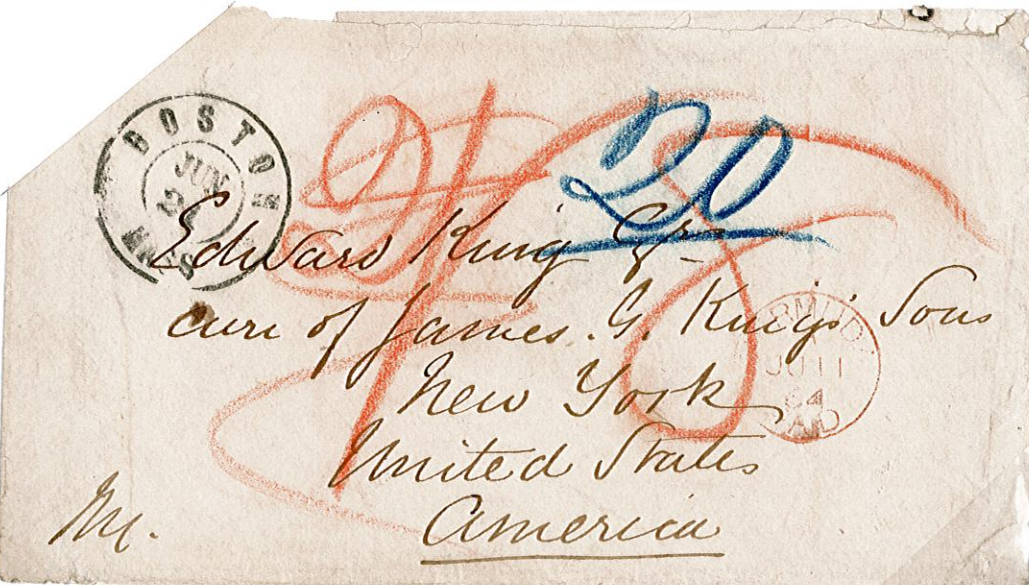 BOSTON
JUN
MASS
20
Edward King Esqre
care of James. G. King's Sons
New York
United States
America
JU 11
64
PAID